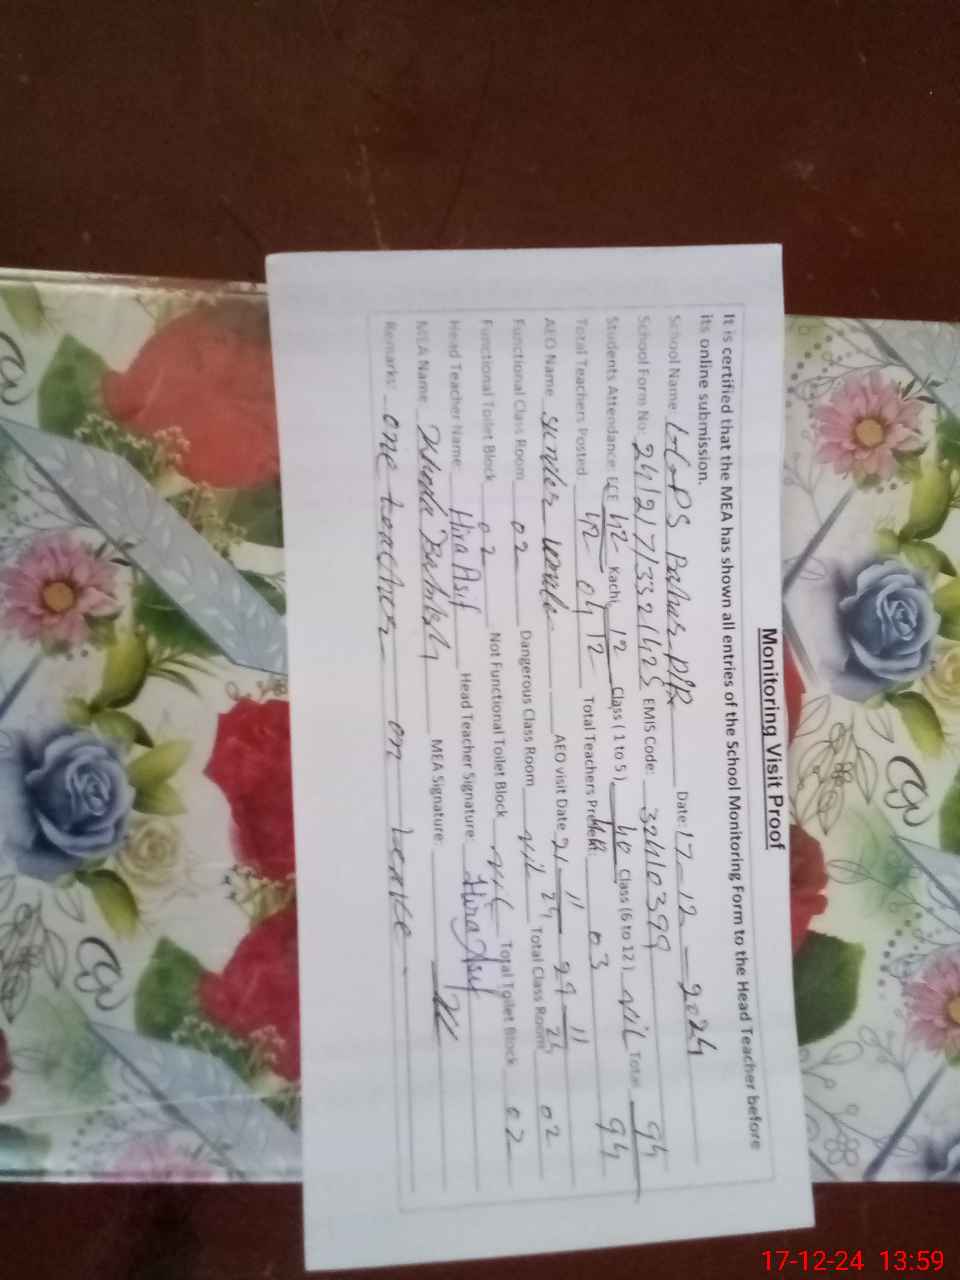 Monitoring Visit Proof
It is certified that the MEA has shown all entries of the School Monitoring Form to the Head Teacher before
its online submission.
School Name GGPS Date: 17-12-2024
School Form No: 24/217/332/425 EMIS Code: 32410399
Students Attendance: ECE 42 Kachi 12 Class ( 1 to 5 ) 40 Class (6 to 12) NIL Total 94
42 12 94
Total Teachers Posted 04 Total Teachers Present: 03
AEO Name AEO visit Date 21 11 24 29 11 24
Functional Class Room 02 Dangerous Class Room NIL Total Class Room 02
Functional Toilet Block 02 Not Functional Toilet Block NIL Total Toilet Block 02
Head Teacher Name: Hira Asif Head Teacher Signature: Hira Asif
MEA Name: MEA Signature:
Remarks: one teacher on Leave.
17-12-24 13:59